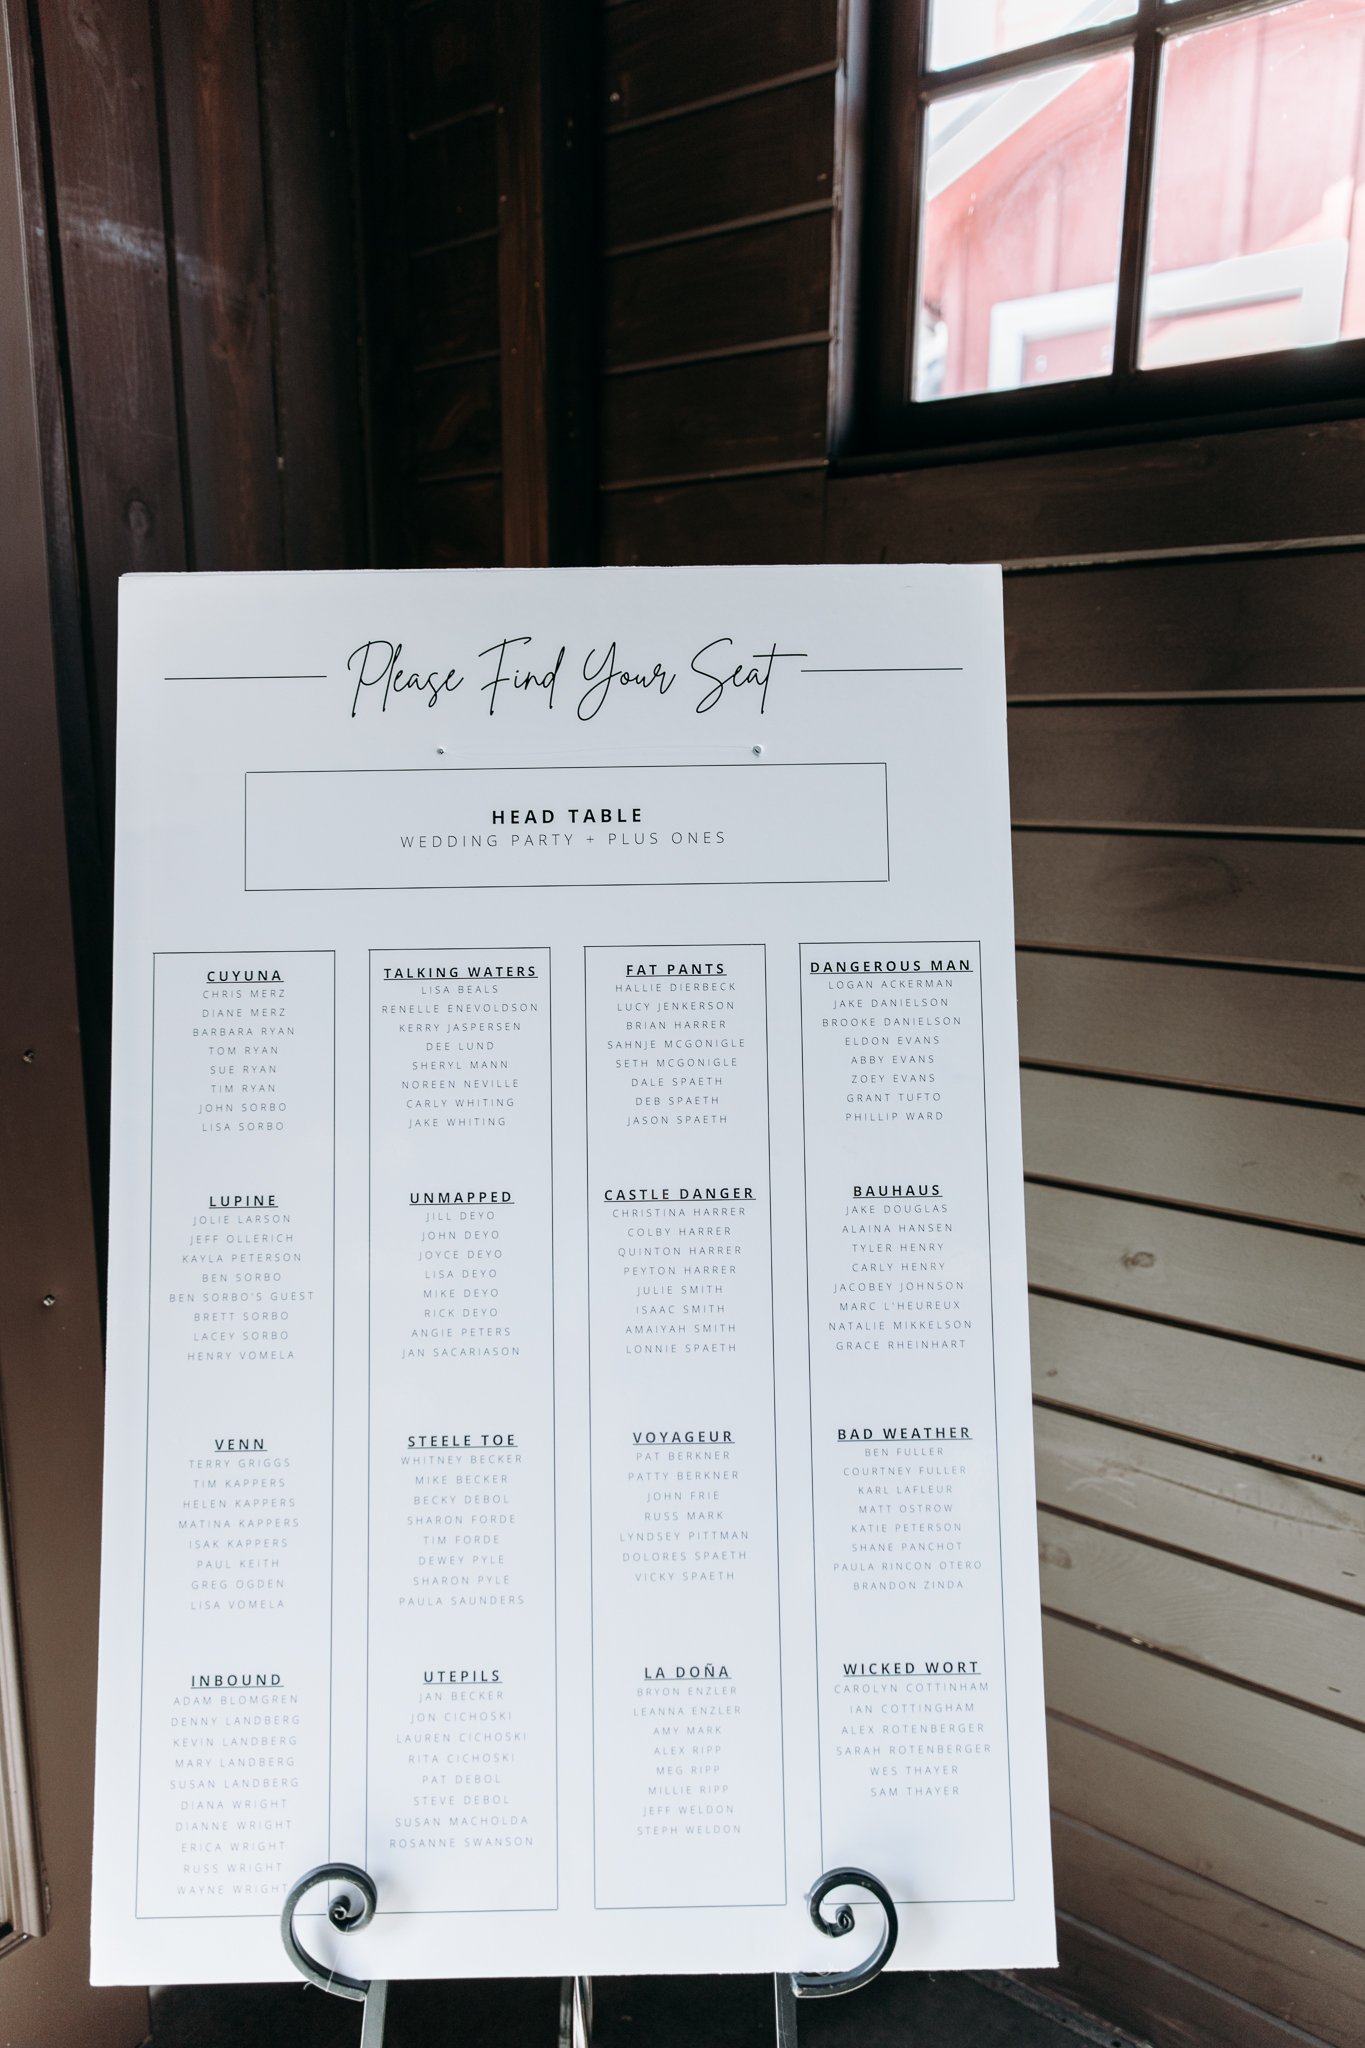 Please Find Your Seat
HEAD TABLE
WEDDING PARTY + PLUS ONES
CUYUNA
CHRIS MERZ
DIANE MERZ
BARBARA RYAN
TOM RYAN
SUE RYAN
TIM RYAN
JOHN SORBO
LISA SORBO
LUPINE
JOLIE LARSON
JEFF OLLERICH
KAYLA PETERSON
BEN SORBO
BEN SORBO'S GUEST
BRETT SORBO
LACEY SORBO
HENRY VOMELA
VENN
TERRY GRIGGS
TIM KAPPERS
HELEN KAPPERS
MATINA KAPPERS
ISAK KAPPERS
PAUL KEITH
GREG OGDEN
LISA VOMELA
INBOUND
ADAM BLOMGREN
DENNY LANDBERG
KEVIN LANDBERG
MARY LANDBERG
SUSAN LANDBERG
DIANA WRIGHT
DIANNE WRIGHT
ERICA WRIGHT
RUSS WRIGHT
WAYNE WRIGHT
TALKING WATERS
LISA BEALS
RENELLE ENEVOLDSON
KERRY JASPERSEN
DEE LUND
SHERYL MANN
NOREEN NEVILLE
CARLY WHITING
JAKE WHITING
UNMAPPED
JILL DEYO
JOHN DEYO
JOYCE DEYO
LISA DEYO
MIKE DEYO
RICK DEYO
ANGIE PETERS
JAN SACARIASON
STEELE TOE
WHITNEY BECKER
MIKE BECKER
BECKY DEBOL
SHARON FORDE
TIM FORDE
DEWEY PYLE
SHARON PYLE
PAULA SAUNDERS
UTEPILS
JAN BECKER
JON CICHOSKI
LAUREN CICHOSKI
RITA CICHOSKI
PAT DEBOL
STEVE DEBOL
SUSAN MACHOLDA
ROSANNE SWANSON
FAT PANTS
HALLIE DIERBECK
LUCY JENKERSON
BRIAN HARRER
SAHNJE MCGONIGLE
SETH MCGONIGLE
DALE SPAETH
DEB SPAETH
JASON SPAETH
CASTLE DANGER
CHRISTINA HARRER
COLBY HARRER
QUINTON HARRER
PEYTON HARRER
JULIE SMITH
ISAAC SMITH
AMAIYAH SMITH
LONNIE SPAETH
VOYAGEUR
PAT BERKNER
PATTY BERKNER
JOHN FRIE
RUSS MARK
LYNDSEY PITTMAN
DOLORES SPAETH
VICKY SPAETH
LA DOÑA
BRYON ENZLER
LEANNA ENZLER
AMY MARK
ALEX RIPP
MEG RIPP
MILLIE RIPP
JEFF WELDON
STEPH WELDON
DANGEROUS MAN
LOGAN ACKERMAN
JAKE DANIELSON
BROOKE DANIELSON
ELDON EVANS
ABBY EVANS
ZOEY EVANS
GRANT TUFTO
PHILLIP WARD
BAUHAUS
JAKE DOUGLAS
ALAINA HANSEN
TYLER HENRY
CARLY HENRY
JACOBEY JOHNSON
MARC L'HEUREUX
NATALIE MIKKELSON
GRACE RHEINHART
BAD WEATHER
BEN FULLER
COURTNEY FULLER
KARL LAFLEUR
MATT OSTROW
KATIE PETERSON
SHANE PANCHOT
PAULA RINCON OTERO
BRANDON ZINDA
WICKED WORT
CAROLYN COTTINHAM
IAN COTTINGHAM
ALEX ROTENBERGER
SARAH ROTENBERGER
WES THAYER
SAM THAYER